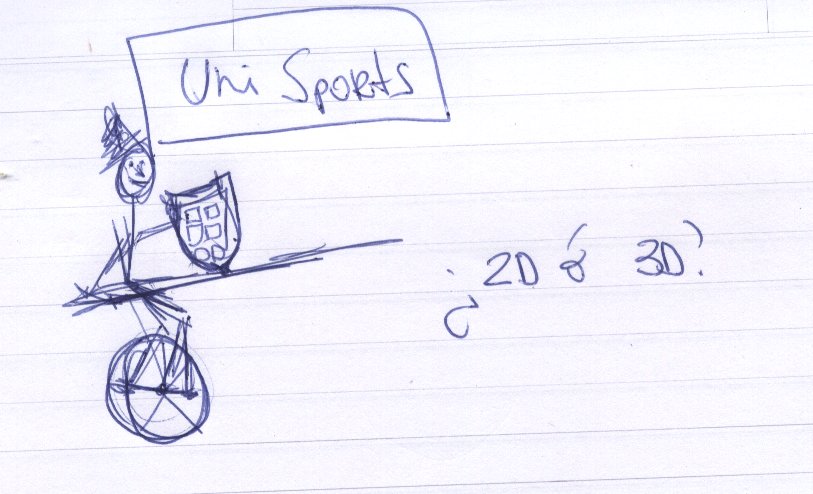 Uni Sports
¿2D ó 3D?